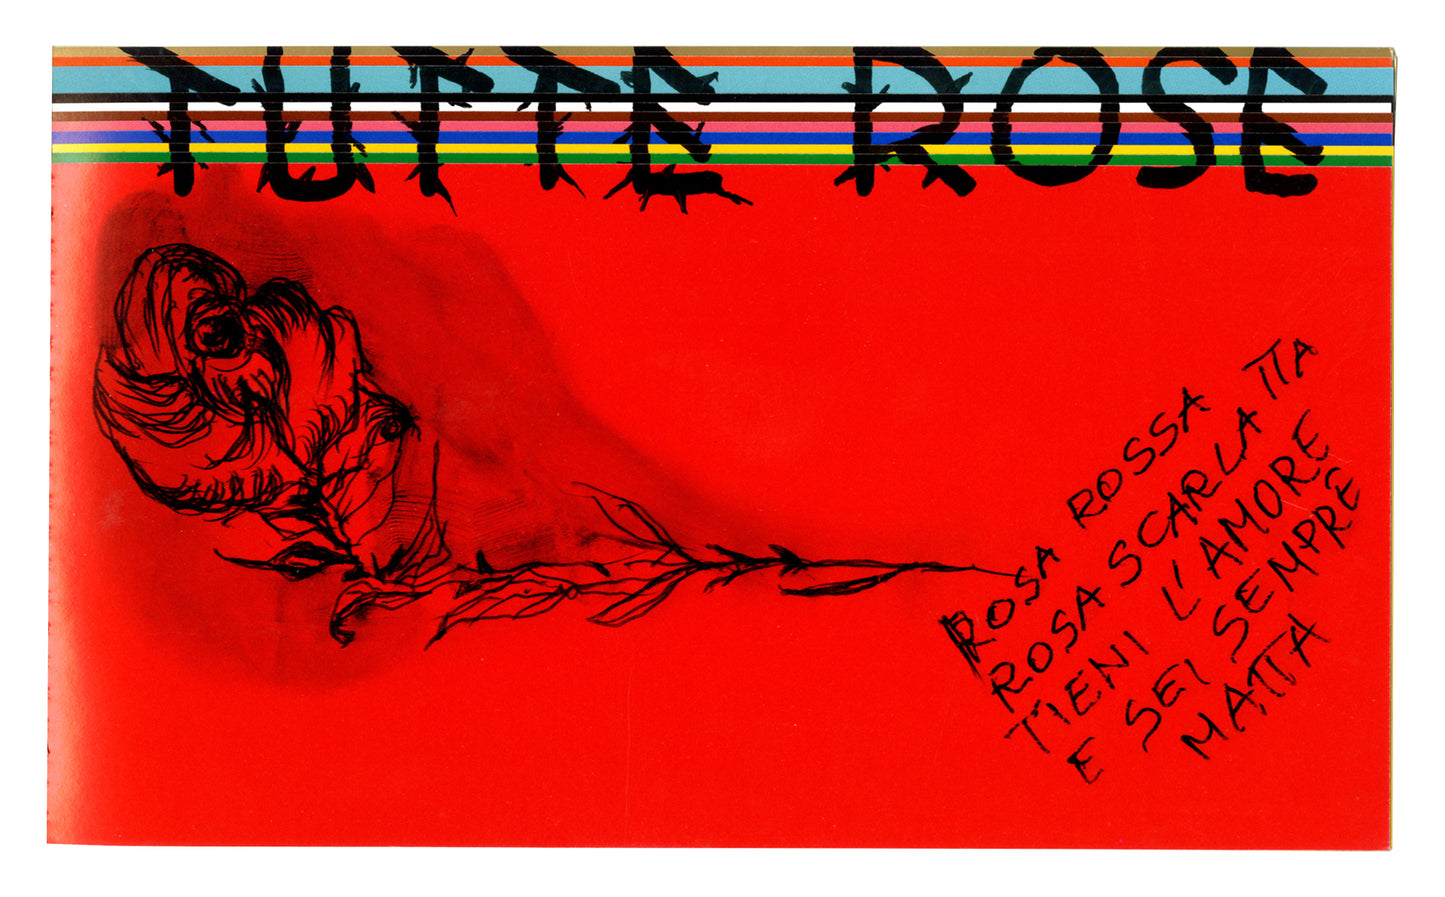 TUTTE ROSE
ROSA ROSSA
ROSA SCARLATTA
TIENI L'AMORE
E SEI SEMPRE
MATTA